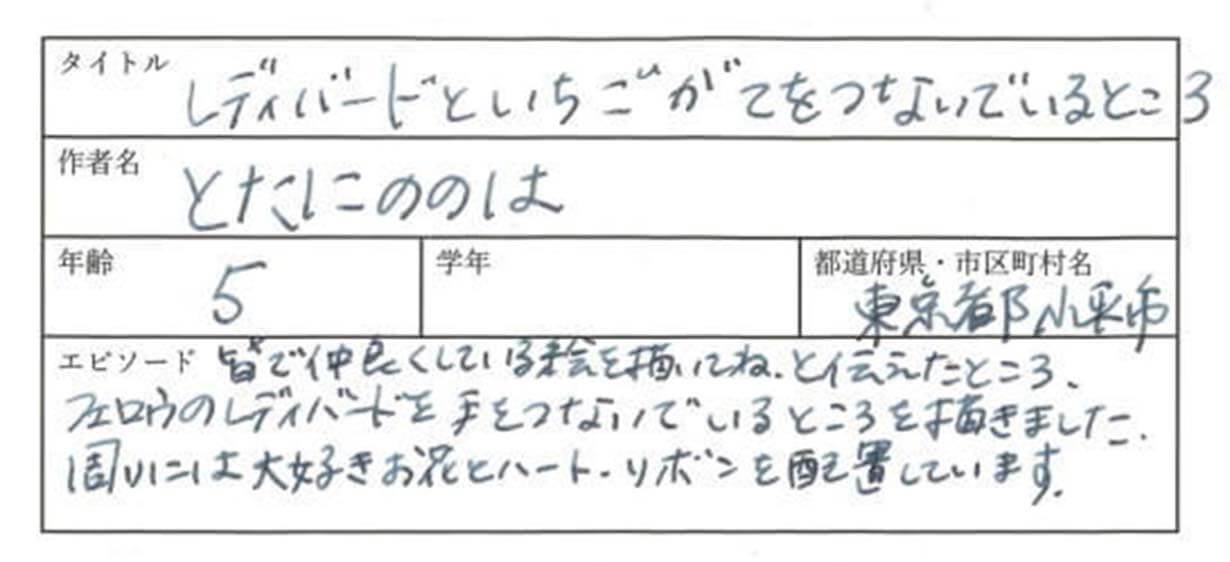 タイトル レディバードといちごがてをつないでいるところ
作者名 とたにののは
年齢 5 学年 都道府県・市区町村名 東京都小平市
エピソード 皆で仲良くしている絵を描いてね.と伝えたところ、
フェロウのレディバードを手をつないでいるところを描きました.
周りには大好きお花とハート.リボンを配置しています.